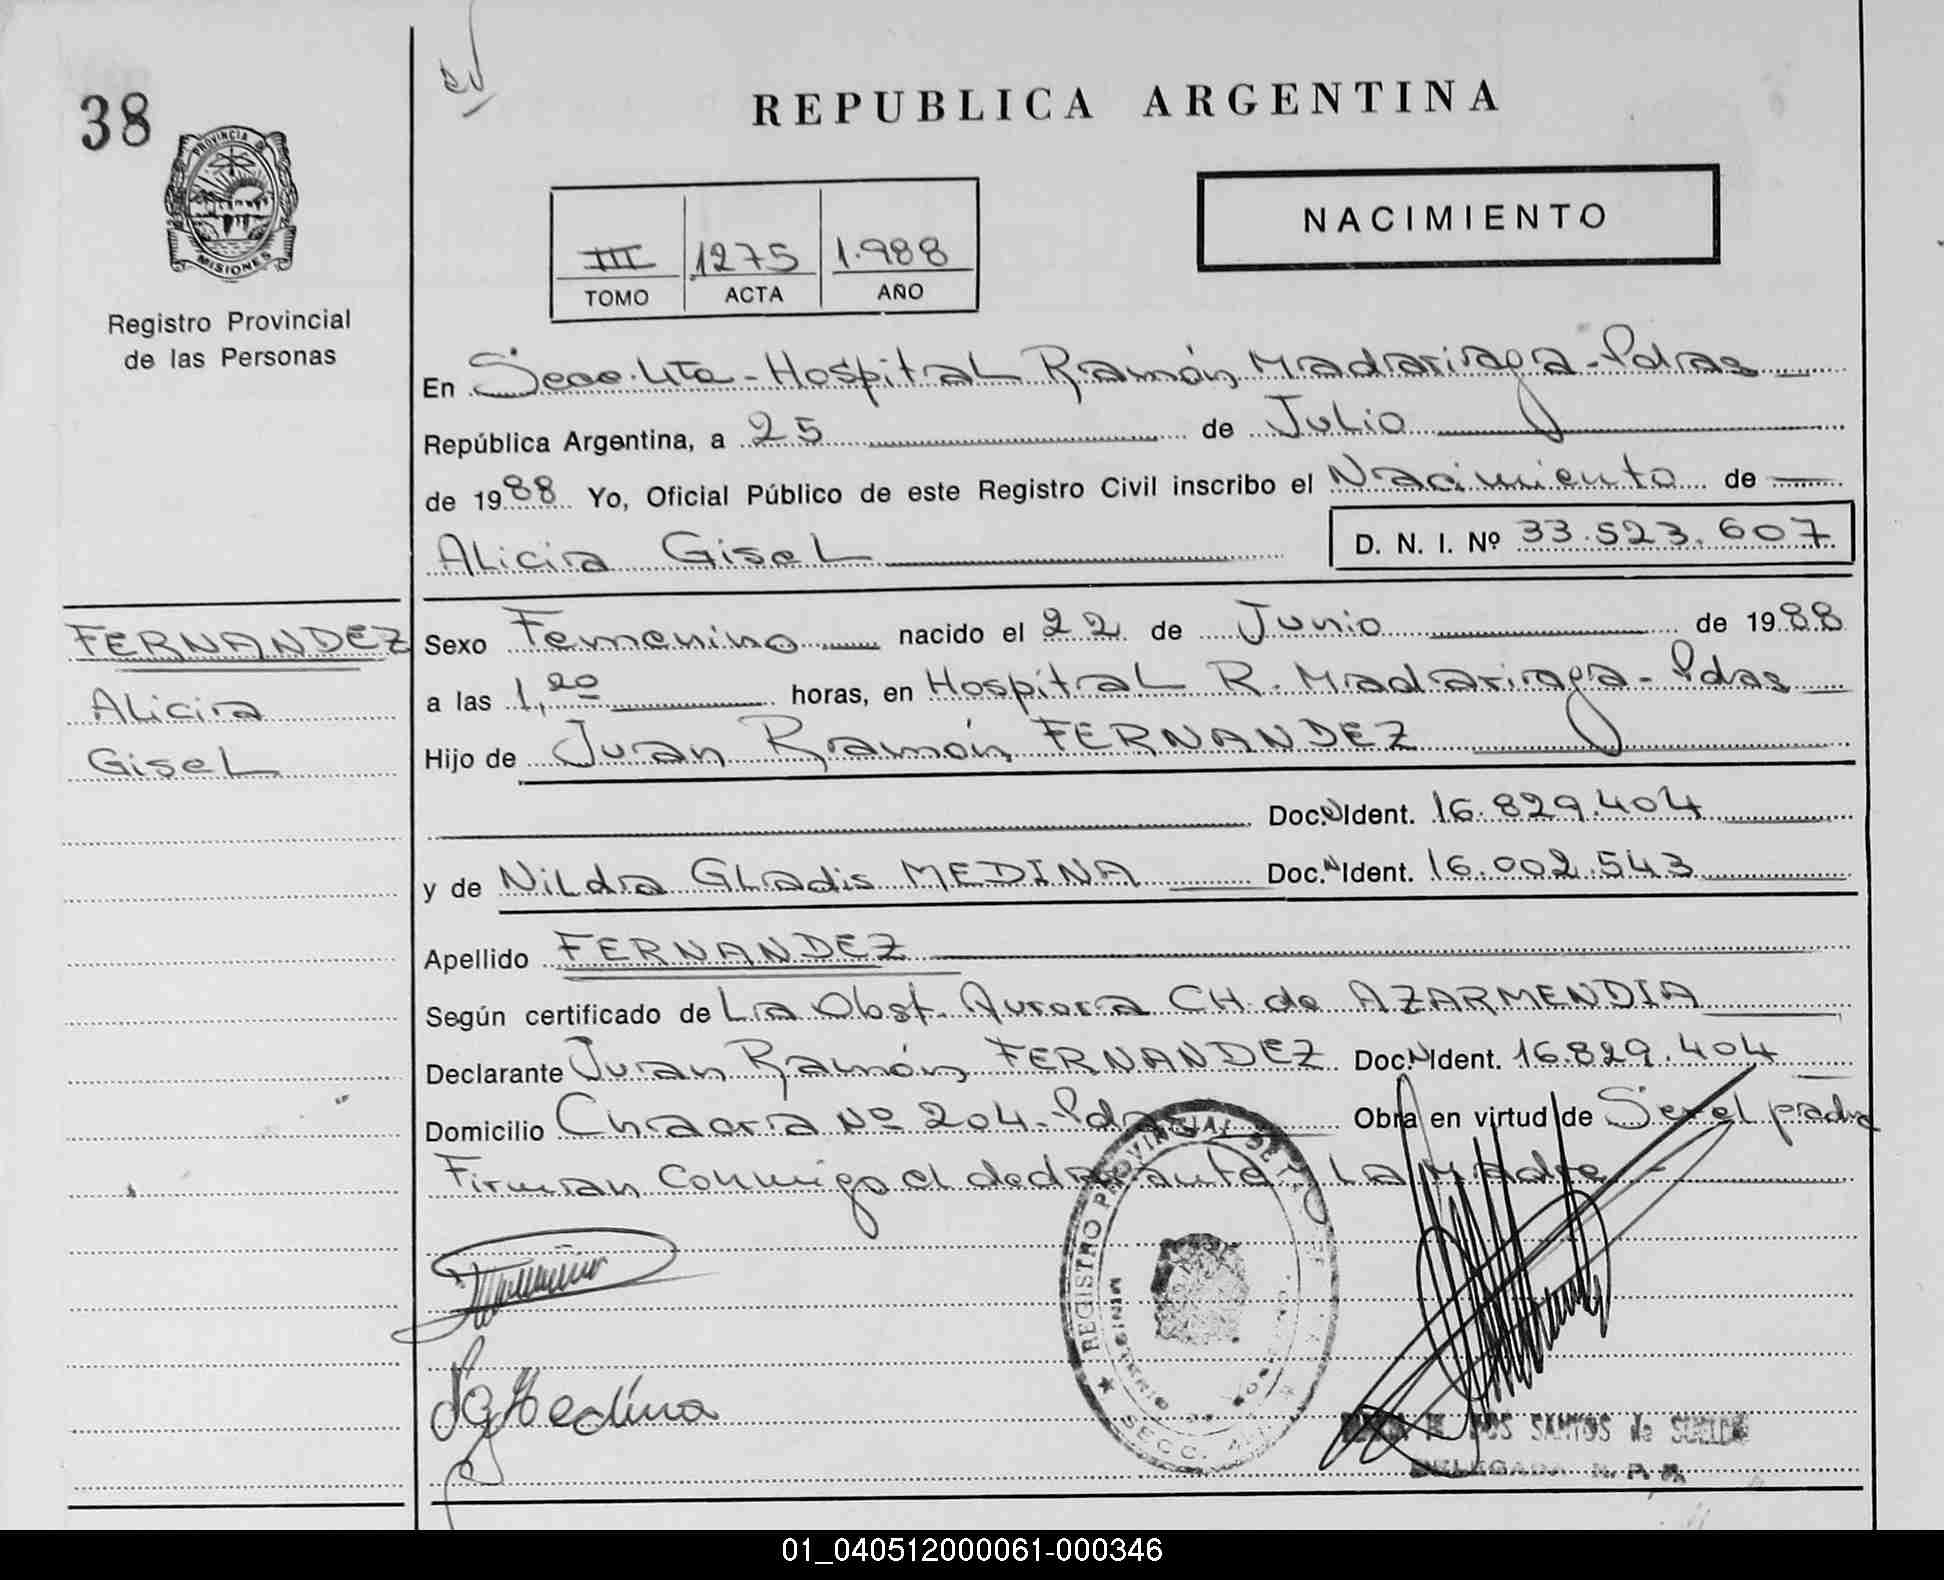 38
REPUBLICA ARGENTINA
PROVINCIA DE
MISIONES
NACIMIENTO
III 1275 1.988
TOMO ACTA AÑO
Registro Provincial
de las Personas
En Secc. 4ta - Hospital Ramón Madariaga - Pdas
República Argentina, a 25 de Julio
de 1988 Yo, Oficial Público de este Registro Civil inscribo el Nacimiento de
Alicia Gisel D. N. I. Nº 33.523.607
FERNANDEZ
Alicia
Gisel
Sexo Femenino nacido el 22 de Junio de 1988
a las 1,20 horas, en Hospital R. Madariaga - Pdas
Hijo de Juan Ramón FERNANDEZ
Doc. N Ident. 16.829.404
y de Nilda Gladis MEDINA Doc. N Ident. 16.002.543
Apellido FERNANDEZ
Según certificado de La Obst. Aurora CH. de AZARMENDIA
Declarante Juan Ramón FERNANDEZ Doc. N Ident. 16.829.404
Domicilio Chacra Nº 204 - Pdas Obra en virtud de Ser el padre
Firman conmigo el declarante y La Madre -
REGISTRO PROVINCIAL DE LAS
MINISTERIO DE
SECC.
Medina
DOS SANTOS de
DELEGADA R. P. P.
01_040512000061-000346